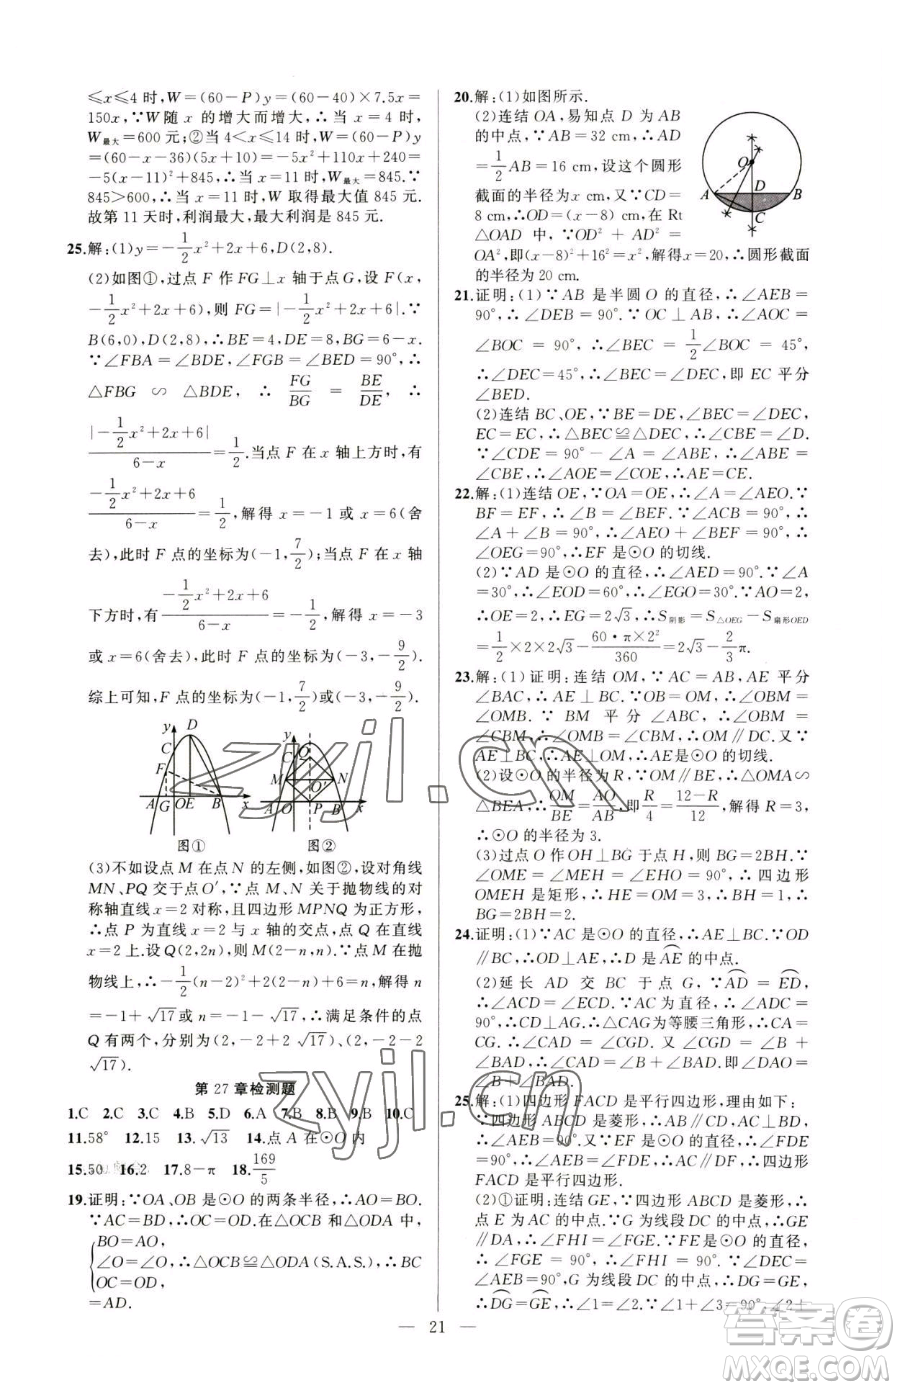 ≤x≤4 时,W=(60-P)y=(60-40)×7.5x=
150x,∵W 随 x 的增大而增大,∴当 x=4 时,
W最大=600 元;②当 4<x≤14 时,W=(60-P)y
=(60-x-36)(5x+10)=-5x²+110x+240=
-5(x-11)²+845,∴当 x=11 时,W最大=845.∵
845>600,∴当 x=11 时,W 取得最大值 845 元.
故第 11 天时,利润最大,最大利润是 845 元.
25.解:(1)y=-1/2x²+2x+6,D(2,8).
(2)如图①,过点 F 作 FG⊥x 轴于点G,设 F(x,
-1/2x²+2x+6),则 FG=|-1/2x²+2x+6|.∵
B(6,0),D(2,8),∴BE=4,DE=8,BG=6-x.
∵∠FBA=∠BDE,∠FGB=∠BED=90°,∴
△FBG∽△BDE,∴FG/BG=BE/DE,∴
|-1/2x²+2x+6|/(6-x)=1/2.当点 F 在 x 轴上方时,有
(-1/2x²+2x+6)/(6-x)=1/2,解得 x=-1 或 x=6(舍
去),此时 F 点的坐标为(-1,7/2);当点 F 在 x 轴
下方时,有(-1/2x²+2x+6)/(6-x)=-1/2,解得 x=-3
或 x=6(舍去),此时 F 点的坐标为(-3,-9/2).
综上可知,F 点的坐标为(-1,7/2)或(-3,-9/2).
y D C F A G O E B x 图①
y C Q M N O′ A O P B x 图②
(3)不如设点 M 在点 N 的左侧,如图②,设对角线
MN,PQ 交于点 O′,∵点 M、N 关于抛物线的对
称轴直线 x=2 对称,且四边形 MPNQ 为正方形,
∴点 P 为直线 x=2 与 x 轴的交点,点 Q 在直线
x=2 上.设 Q(2,2n),则 M(2-n,n).∵点 M 在抛
物线上,∴-1/2(2-n)²+2(2-n)+6=n,解得 n
=-1+√17或 n=-1-√17,∴满足条件的点
Q 有两个,分别为(2,-2+2√17)或(2,-2-2
√17).
第 27 章检测题
1.C 2.C 3.C 4.B 5.D 6.A 7.B 8.B 9.B 10.C
11.58° 12.15 13.√13 14.点 A 在⊙O 内
15.50 16.2 17.8-π 18.169/5
19.证明:∵OA、OB 是⊙O 的两条半径,∴AO=BO.
∵AC=BD,∴OC=OD.在△OCB 和△ODA 中,
BO=AO,
∠O=∠O,∴△OCB≌△ODA(S.A.S.),∴BC
OC=OD,
=AD.
20.解:(1)如图所示.
(2)连结 OA,易知点 D 为 AB
的中点,∵AB=32 cm,∴AD
=1/2AB=16 cm,设这个圆形
截面的半径为 x cm,又∵CD=
8 cm,∴OD=(x-8) cm,在 Rt
△OAD 中,∵OD²+AD²=
OA²,即(x-8)²+16²=x²,解得x=20,∴圆形截面
的半径为 20 cm.
O A D B C
21.证明:(1)∵AB 是半圆 O 的直径,∴∠AEB=
90°,∴∠DEB=90°.∵OC⊥AB,∴∠AOC=
∠BOC=90°,∴∠BEC=1/2∠BOC=45°,
∴∠DEC=45°,∴∠BEC=∠DEC,即 EC 平分
∠BED.
(2)连结 BC、OE,∵BE=DE,∠BEC=∠DEC,
EC=EC,∴△BEC≌△DEC,∴∠CBE=∠D.
∵∠CDE=90°-∠A=∠ABE,∴∠ABE=
∠CBE,∴∠AOE=∠COE,∴AE=CE.
22.解:(1)连结 OE,∵OA=OE,∴∠A=∠AEO.∵
BF=EF,∴∠B=∠BEF.∵∠ACB=90°,∴
∠A+∠B=90°,∴∠AEO+∠BEF=90°,∴
∠OEG=90°,∴EF 是⊙O 的切线.
(2)∵AD 是⊙O 的直径,∴∠AED=90°.∵∠A=
30°,∴∠EOD=60°,∴∠EGO=30°.∵AO=2,
∴OE=2,∴EG=2√3,∴S阴影=S△OEG-S扇形OED
=1/2×2×2√3-60·π×2²/360=2√3-2/3π.
23.解:(1)证明:连结 OM,∵AC=AB,AE 平分
∠BAC,∴AE⊥BC.∵OB=OM,∴∠OBM=
∠OMB.∵BM 平分∠ABC,∴∠OBM=
∠CBM,∴∠OMB=∠CBM,∴OM∥DC.又∵
AE⊥BC,∴AE⊥OM,∴AE是⊙O 的切线.
(2)设⊙O 的半径为 R,∵OM∥BE,∴△OMA∽
△BEA,∴OM/BE=AO/AB,即R/4=(12-R)/12,解得 R=3,
∴⊙O 的半径为 3.
(3)过点 O 作 OH⊥BG 于点 H,则 BG=2BH.∵
∠OME=∠MEH=∠EHO=90°,∴四边形
OMEH 是矩形,∴HE=OM=3,∴BH=1,∴
BG=2BH=2.
24.证明:(1)∵AC 是⊙O 的直径,∴AE⊥BC.∵OD
∥BC,∴OD⊥AE,∴D 是AE的中点.
(2)延长 AD 交 BC 于点 G,∵AD=ED,∴
∠ACD=∠ECD.∵AC 为直径,∴∠ADC=
90°,∴CD⊥AG,∴△CAG为等腰三角形,∴CA=
CG.∴∠CAD=∠CGD.又∵∠CGD=∠B+
∠BAD,∴∠CAD=∠B+∠BAD.即∠DAO=
∠B+∠BAD.
25.解:(1)四边形 FACD 是平行四边形,理由如下:
∵四边形ABCD是菱形,∴AB∥CD,AC⊥BD.∵
∠AEB=90°.∵∠FDB=90°,∴AC∥DF,∴四边形
FACD 是平行四边形.
(2)①证明:连结 GE,∵四边形 ABCD 是菱形,∴
点 E 为 AC 的中点.∵G 为线段 DC 的中点,∴GE
∥DA,∴∠FHI=∠FGE.∵FE是⊙O的直径,
∴∠FGE=90°,∴∠FHI=90°.②∵
∠AEB=90°,G 为线段 DC 的中点,∴DG=GE,
∴DG=GE,∴∠1=∠2.∵∠1+∠3=90°,∠2+
— 21 —
zyjl.cn
zyjl.cn
答案圈
MXQE.COM